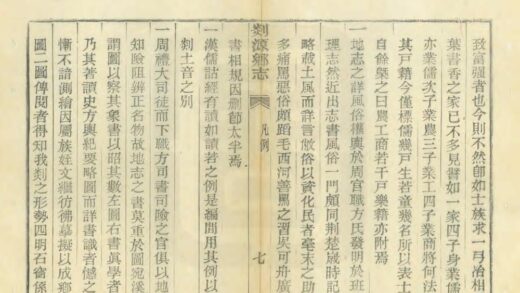 致富彊者也今則不然卽如士族求一弓冶相
葉書香之家已不多見譬如一家四子身業儒
亦業儒次子業農三子業工四子業商將何法
其戸籍今僅標儒幾戸生若童幾名所以表士
自餘槩之曰農工商若干戸樂籍亦附焉
一地志之詳風俗權輿於周官職方氏發明於班
理志然近出志書風俗一門頗同荆楚歲時記
略載土風而詳言敝俗以資化民者毫末之助
多痛罵惡俗頗蹈毛西河善罵之習矣可舟廣
剡源鄕志 凡例 七
書相規因删節太半焉
一漢儒詁經有讀如讀若之例是編間用其例以
剡土音之別
一周禮大司徒而下職方司書司險之官俱以地
知險阻辨正名物故地志之書莫重於圖宛溪
謂圖以察其象書以昭其數左圖右書眞學者
乃其著讀史方輿紀要略圖而詳書識者憾之
慚不諳測繪因屬族姪文繼彷彿摹擬以成鄕
圖二圖傳閱者得知我剡之形勢四明石窗係